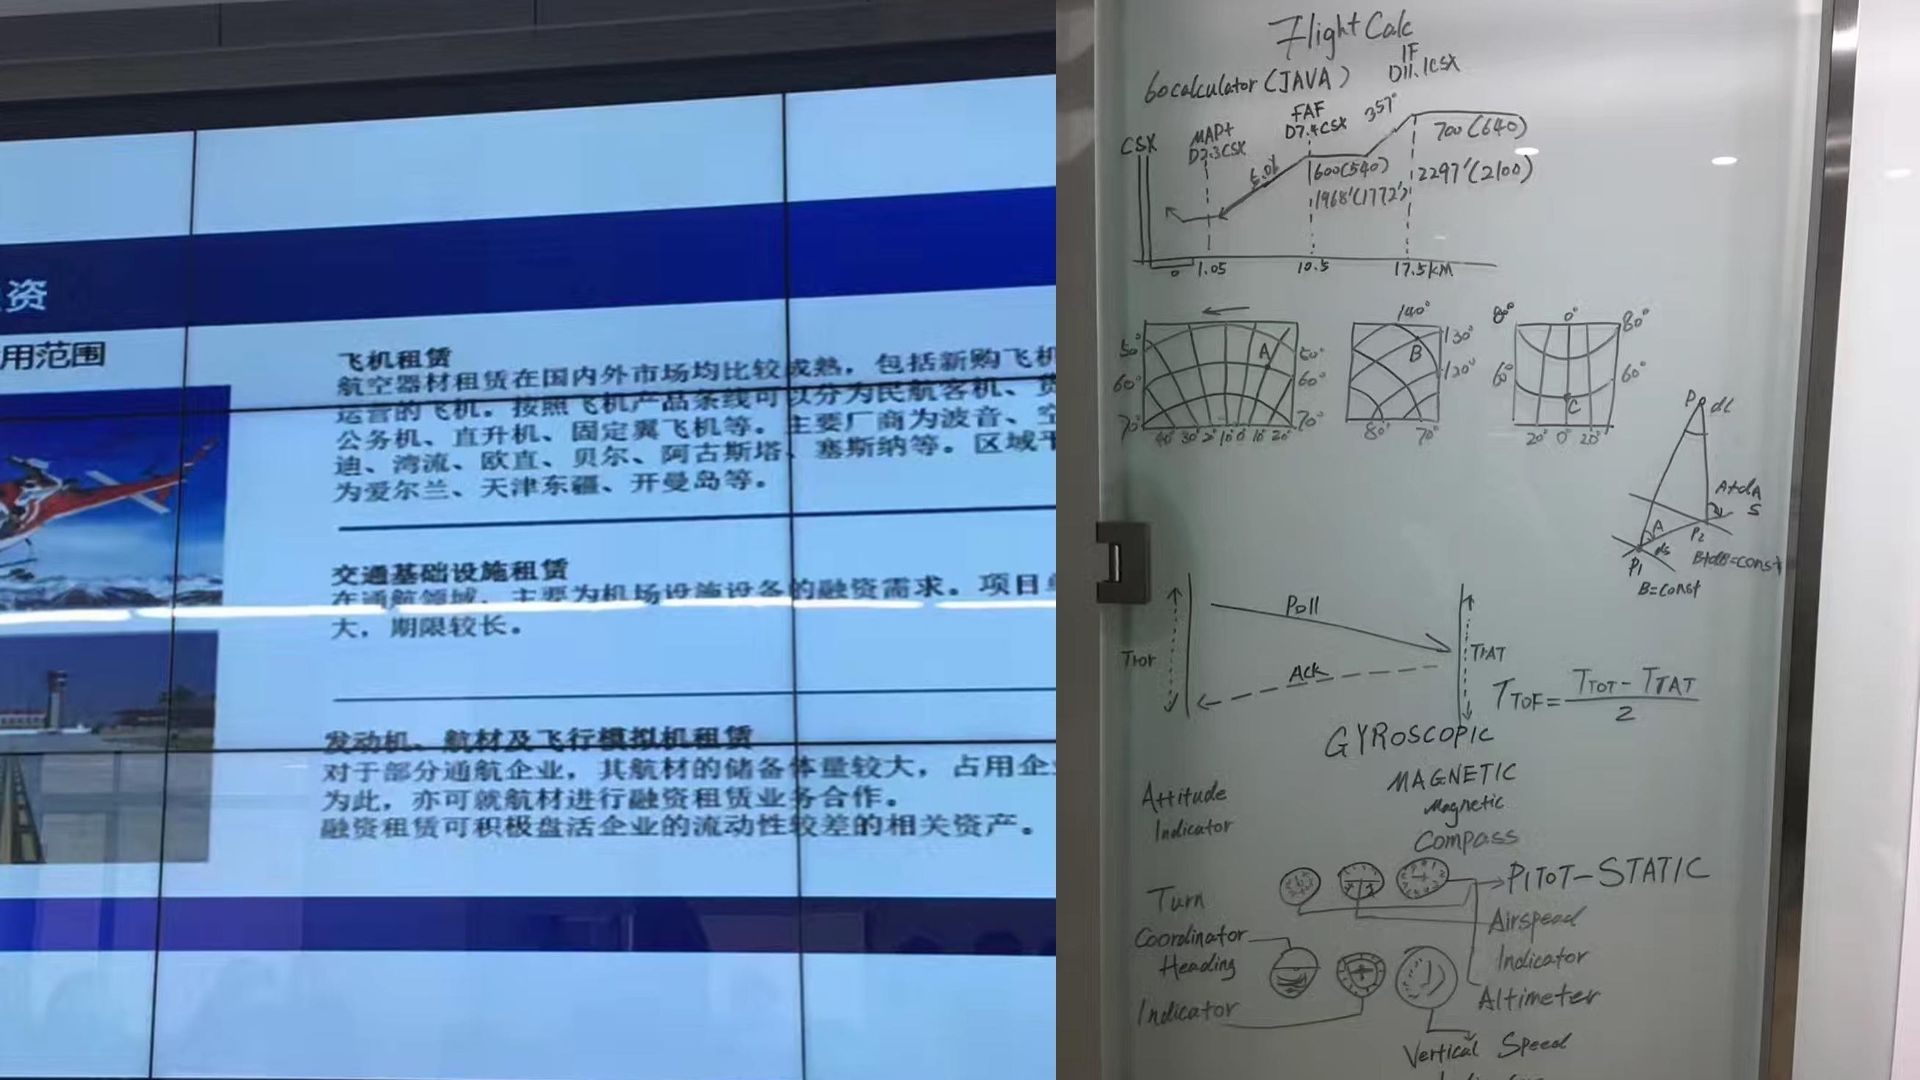 资
用范围
飞机租赁
航空器材租赁在国内外市场均比较成熟，包括新购飞机
运营的飞机。按照飞机产品条线可以分为民航客机、
公务机、直升机、固定翼飞机等。主要厂商为波音、空
迪、湾流、欧直、贝尔、阿古斯塔、塞斯纳等。区域
为爱尔兰、天津东疆、开曼岛等。
交通基础设施租赁
在通航领域，主要为机场设施设备的融资需求。项目
大，期限较长。
发动机、航材及飞行模拟机租赁
对于部分通航企业，其航材的储备体量较大，占用企
为此，亦可就航材进行融资租赁业务合作。
融资租赁可积极盘活企业的流动性较差的相关资产。
Flight Calc
60calculator (JAVA)
IF
D11.1CSX
FAF
D7.4CSX
357°
MAPt
D2.3CSX
CSX
700(640)
5.0%
600(540)
2297'(2100)
1968'(1772')
0 1.05 10.5 17.5KM
140°
80° 0° 80°
50° A 50° B 130°
60° 60° 120° 60° 60°
C
70° 70°
40° 30° 2° 10° 0° 10° 20° 80° 70° 20° 0° 20°
P dl
A+dA
S
A
ds
P2
P1
B+dB=const
B=const
Poll
TTOT
TTAT
Ack
TTOF= TTOT-TTAT
2
GYROSCOPIC
MAGNETIC
Attitude
Indicator
Magnetic
Compass
PITOT-STATIC
Turn
Coordinator
Airspeed
Indicator
Heading
Indicator
Altimeter
Vertical Speed